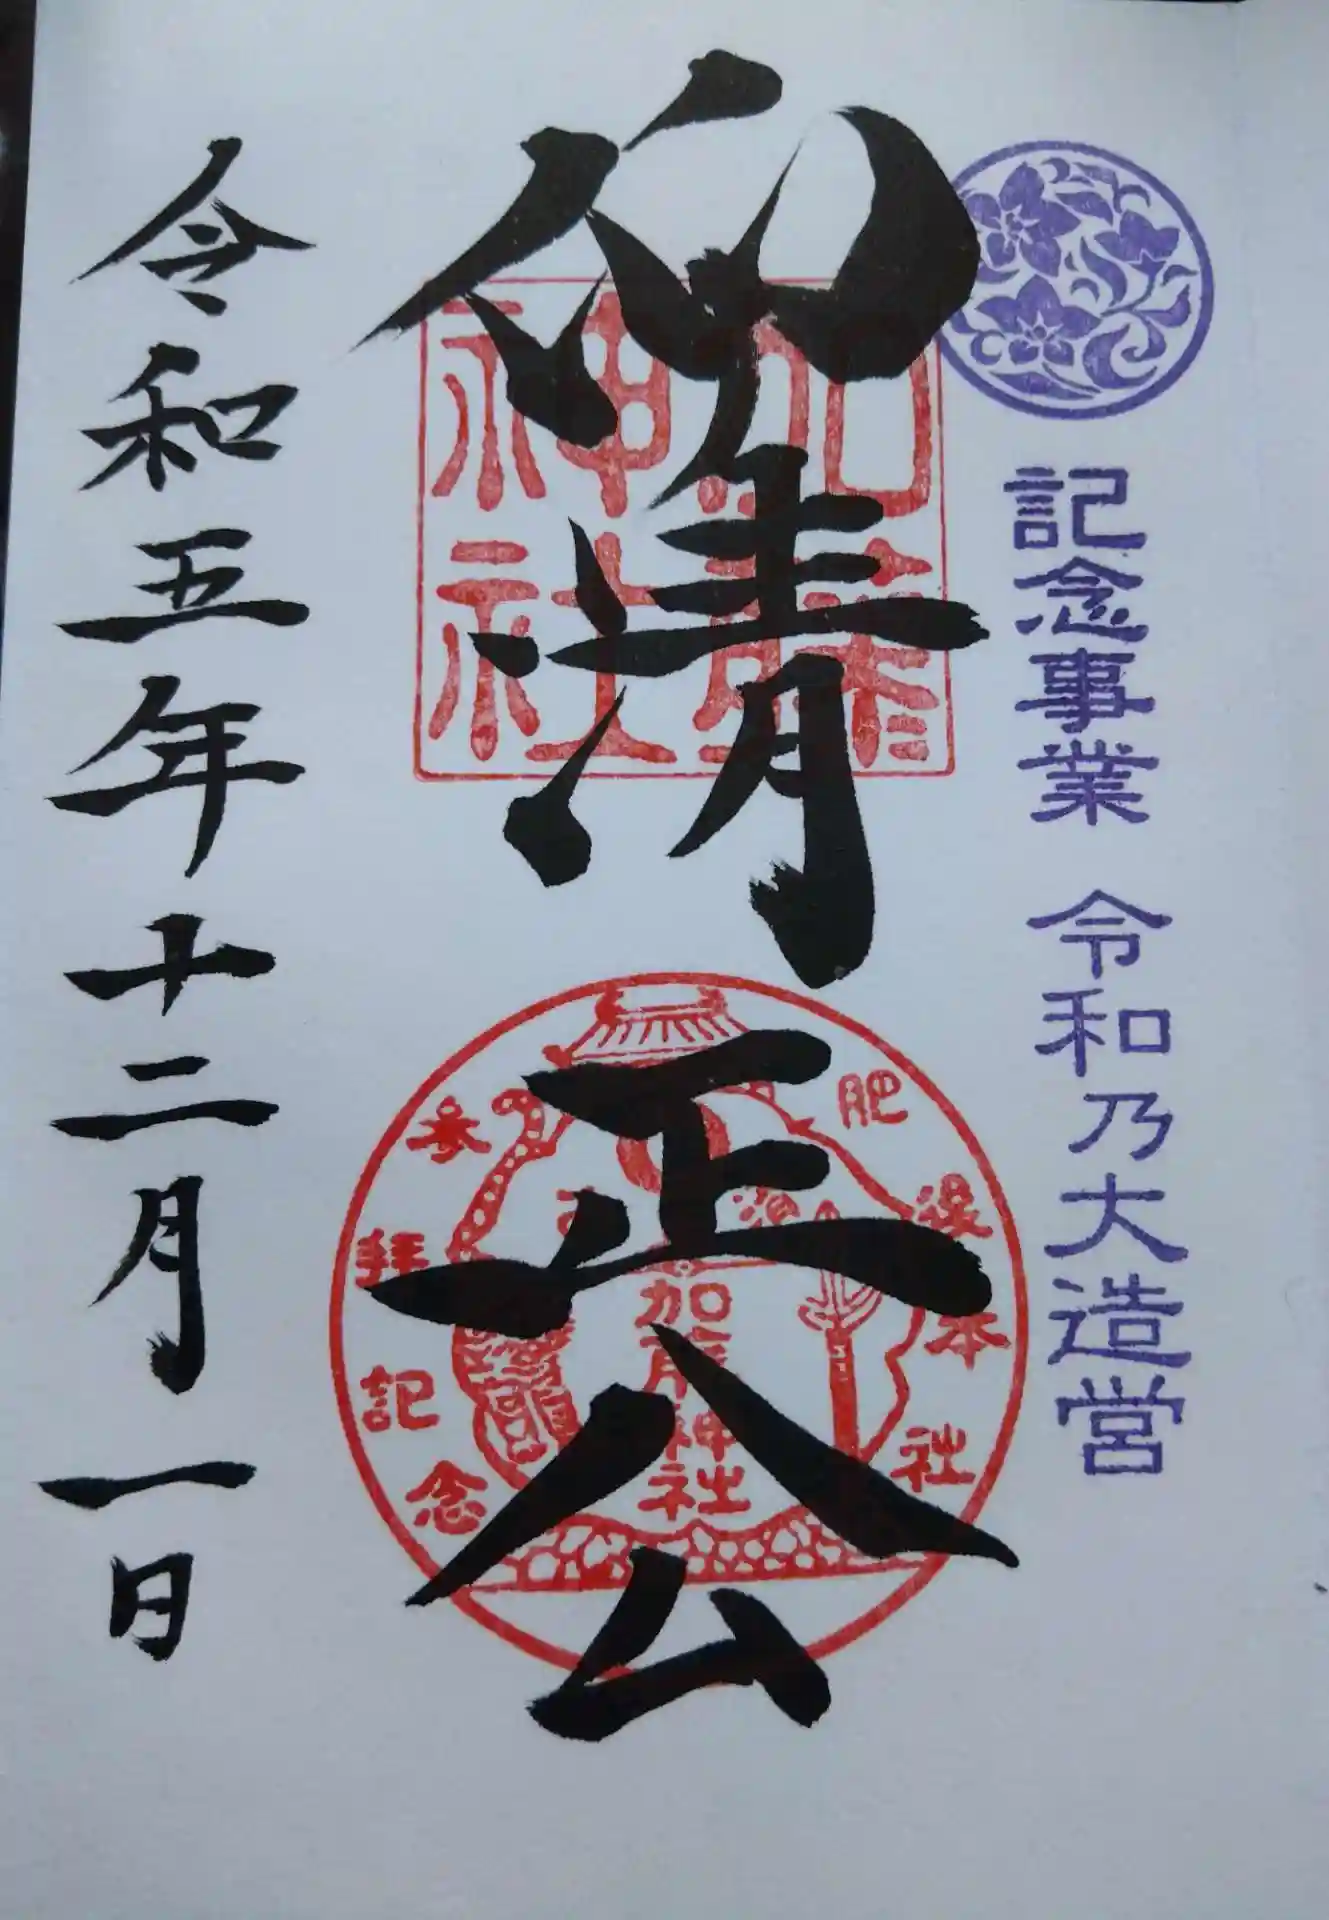 記念事業 令和乃大造営
仰清正公
加藤神社
肥後本社
加藤神社
参拝記念
令和五年十二月一日